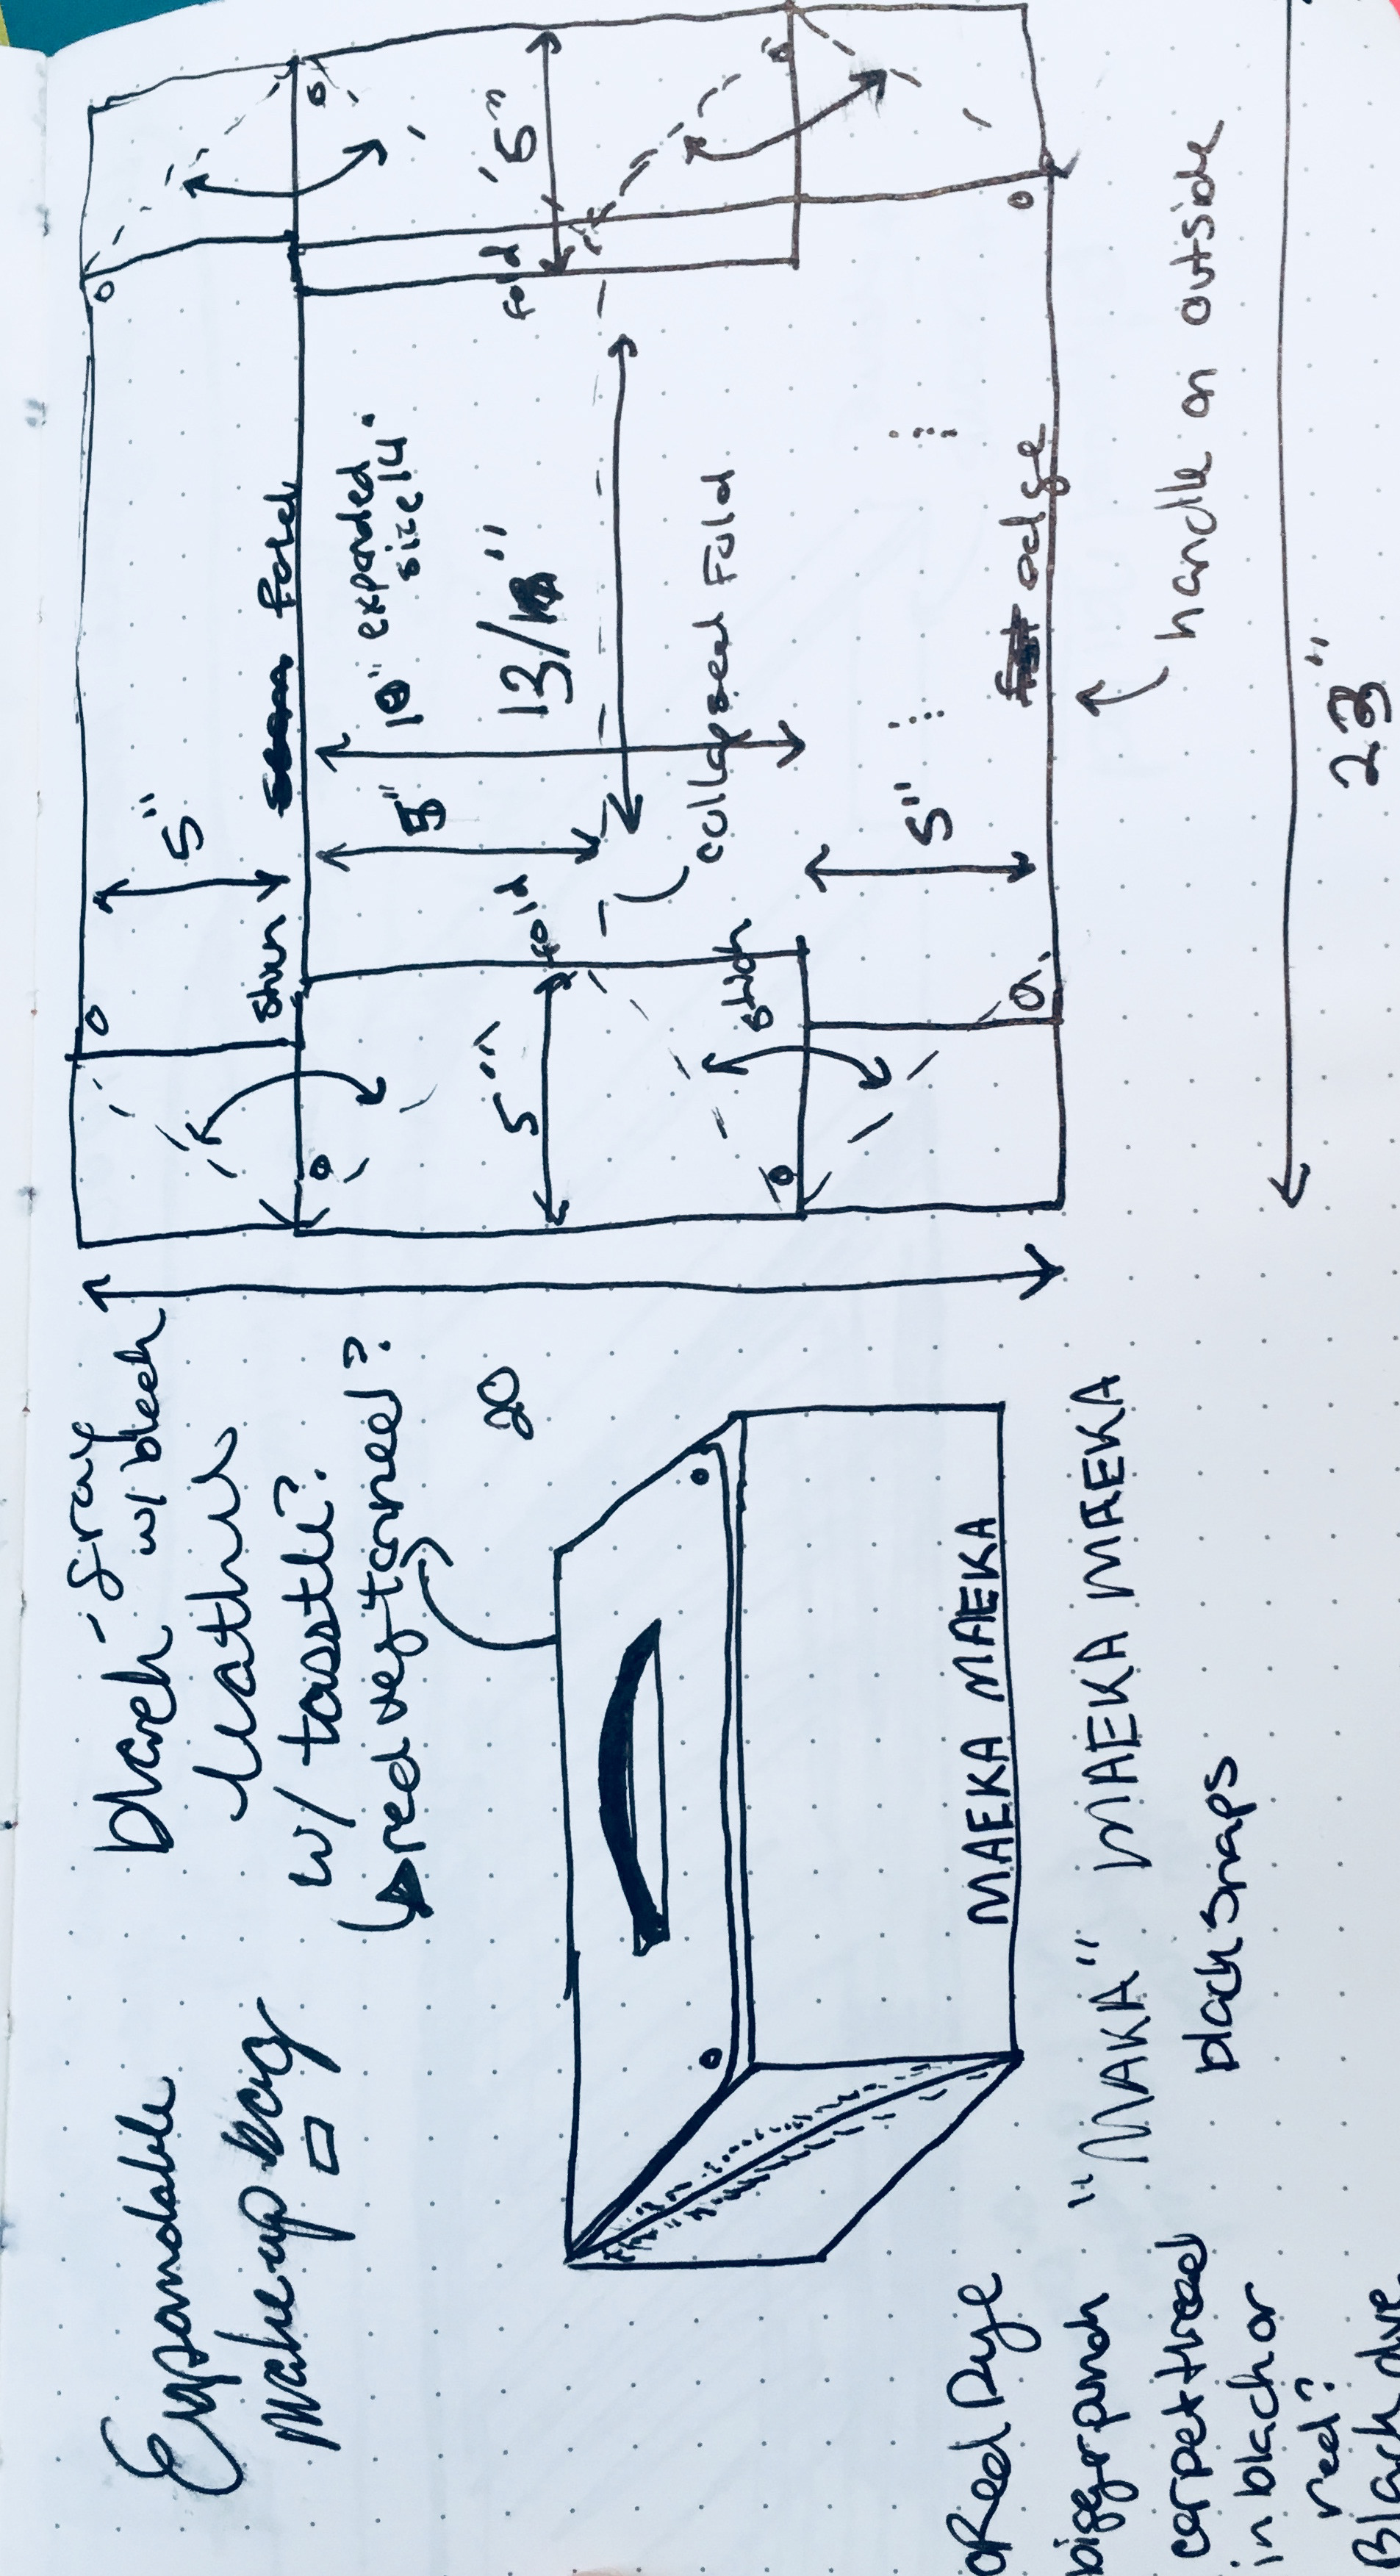 Expandable
makeup bag
black - gray
w/ bleach
leather
w/ tasstle?
red veg tanned?
20
MAEKA MAEKA
Red Dye
bigger punch
carpet thread
in black or
red?
Black dye
"MAKA" MAEKA MAEKA
black snaps
5"
fold
shun
10" expanded
size 14"
13/
5"
fold
5"
stich
fold
5"
collapsed Fold
5"
edge
handle on outside
23"